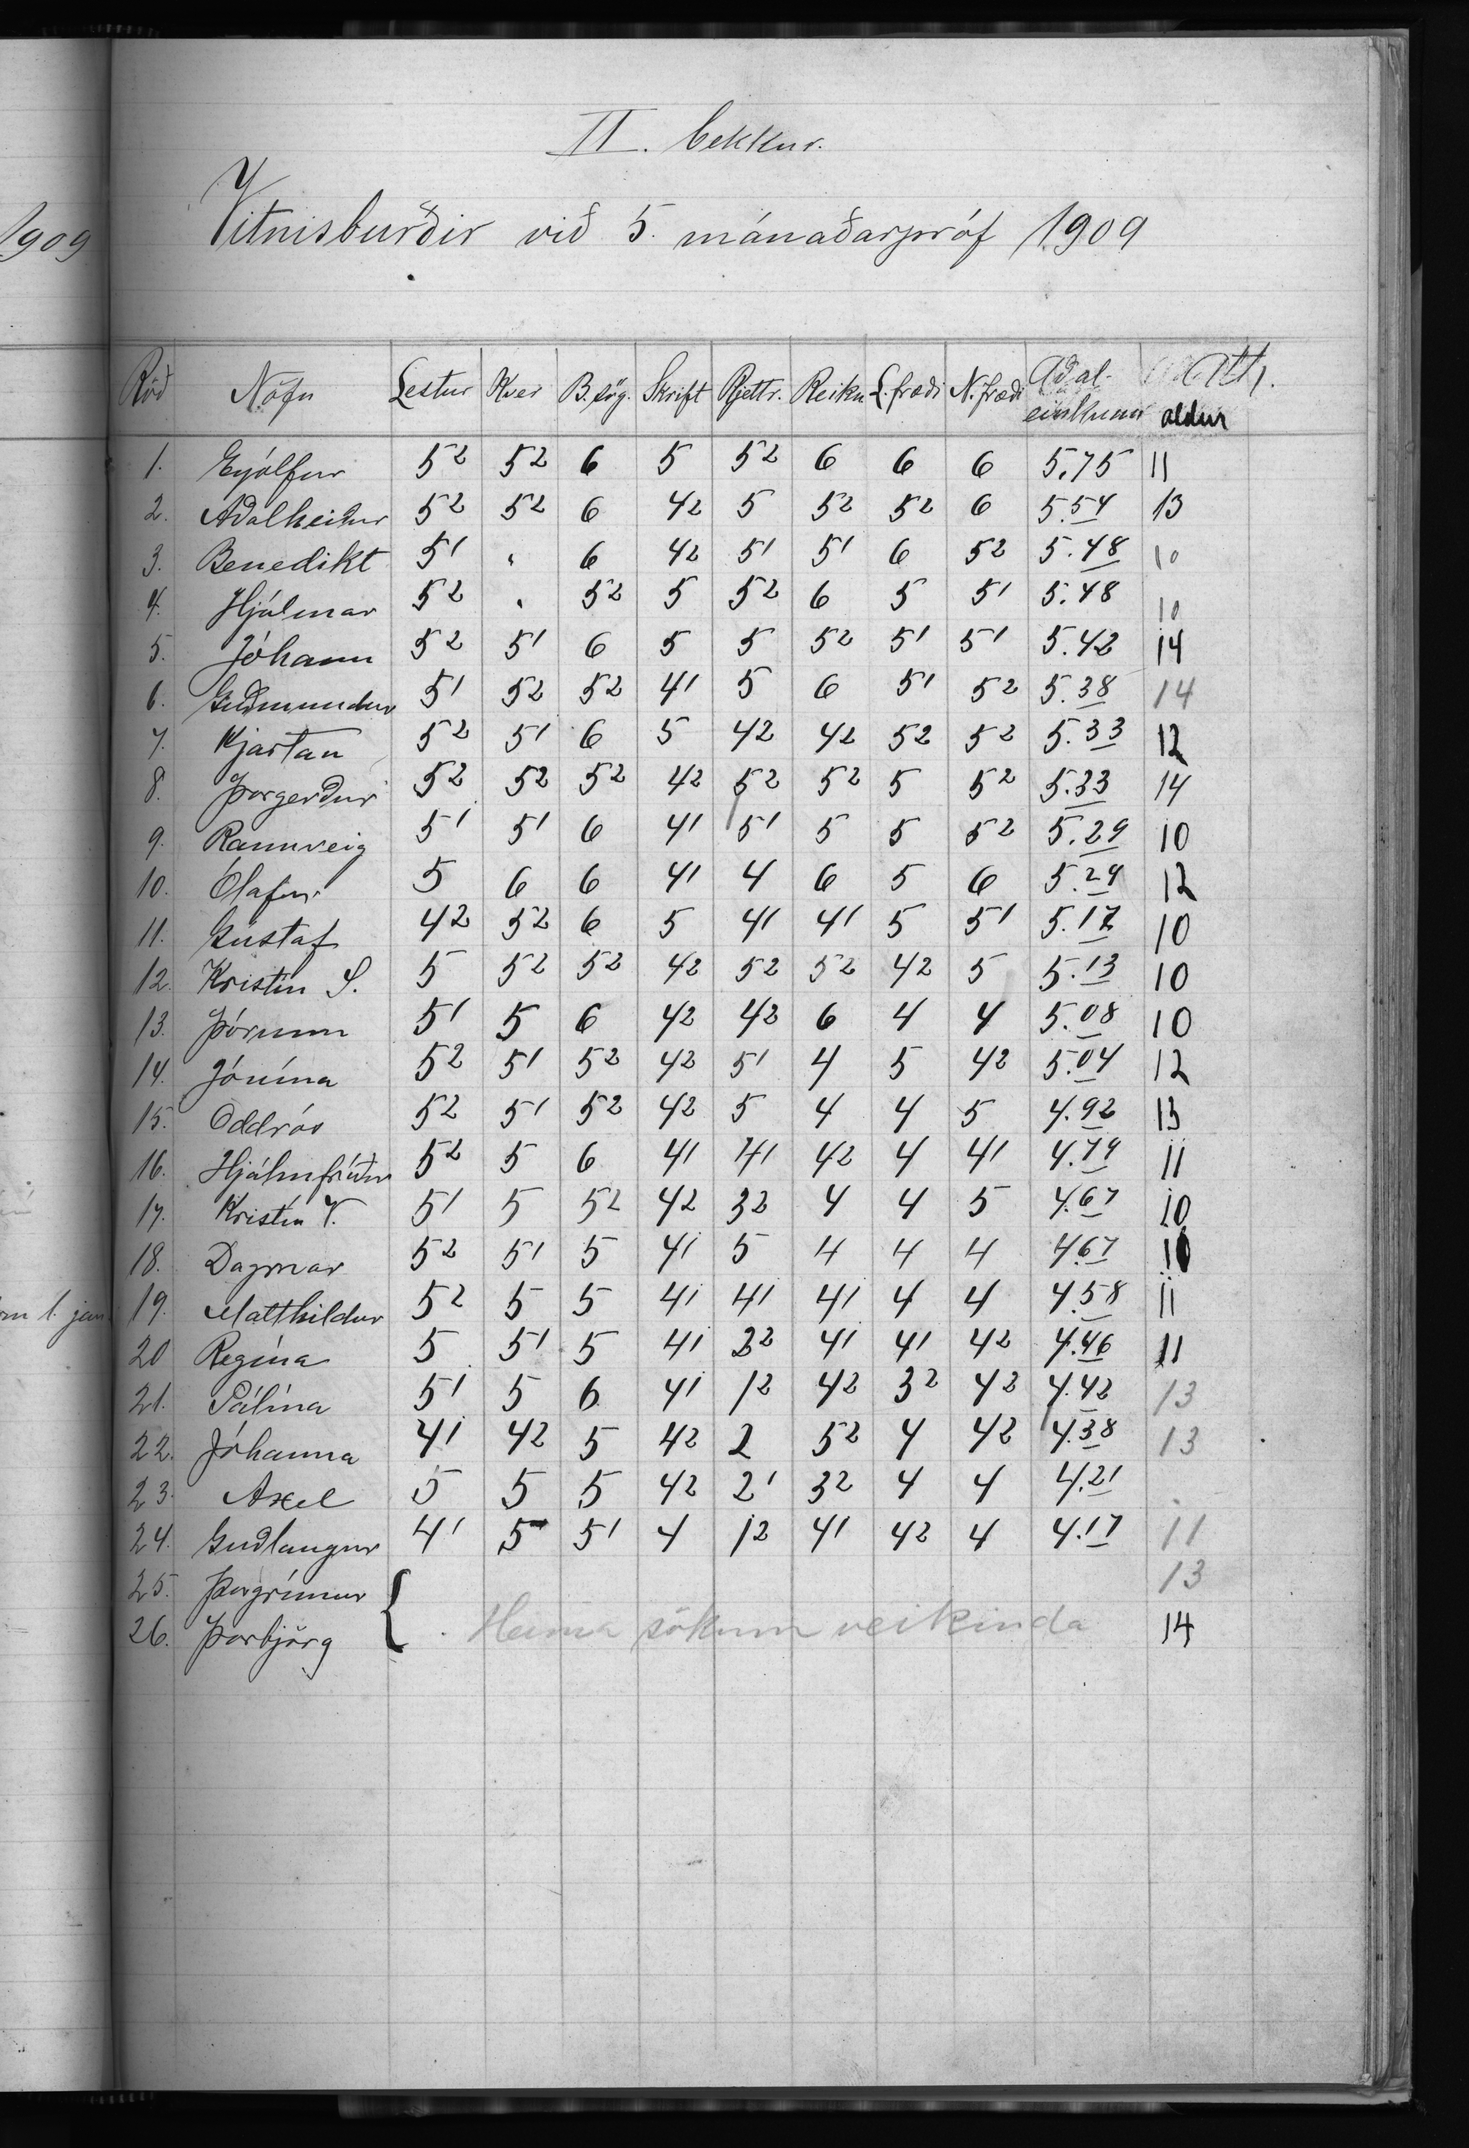 II. bekkur.
Vitnisburðir við 5. mánaðarpróf 1909
1909
Röð Nöfn Lestur Kver B.sög. Skrift Rjettr. Reikn L.fræði N.fræði Aðal-einkunn Ath. aldur
1. Eyjólfur 5² 5² 6 5 5² 6 6 6 5.75 11
2. Aðalheiður 5² 5² 6 4² 5 5² 5² 6 5.54 13
3. Benedikt 5¹ . 6 4² 5¹ 5¹ 6 5² 5.48 10
4. Hjálmar 5² . 5² 5 5² 6 5 5¹ 5.48 10
5. Jóhann 5² 5¹ 6 5 5 5² 5¹ 5¹ 5.42 14
6. Guðmundur 5¹ 5² 5² 4¹ 5 6 5¹ 5² 5.38 14
7. Kjartan 5² 5¹ 6 5 4² 4² 5² 5² 5.33 12
8. Þorgerður 5² 5² 5² 4² 5² 5² 5 5² 5.33 14
9. Rannveig 5¹ 5¹ 6 4¹ 5¹ 5 5 5² 5.29 10
10. Ólafur 5 6 6 4¹ 4 6 5 6 5.29 12
11. Gustaf 4² 5² 6 5 4¹ 4¹ 5 5¹ 5.17 10
12. Kristín S. 5 5² 5² 4² 5² 5² 4² 5 5.13 10
13. Þórunn 5¹ 5 6 4² 4² 6 4 4 5.08 10
14. Jónína 5² 5¹ 5² 4² 5¹ 4 5 4² 5.04 12
15. Oddrós 5² 5¹ 5² 4² 5 4 4 5 4.92 13
16. Hjálmfríður 5² 5 6 4¹ 4¹ 4² 4 4¹ 4.79 11
17. Kristín V. 5¹ 5 5² 4² 3² 4 4 5 4.67 10
18. Dagmar 5² 5¹ 5 4¹ 5 4 4 4 4.67 10
19. Matthildur 5² 5 5 4¹ 4¹ 4¹ 4 4 4.58 11
20 Regína 5 5¹ 5 4¹ 2² 4¹ 4¹ 4² 4.46 11
21. Pálína 5¹ 5 6 4¹ 1² 4² 3² 4² 4.42 13
22. Jóhanna 4¹ 4² 5 4² 2 5² 4 4² 4.38 13
23. Axel 5 5 5 4² 2¹ 3² 4 4 4.21
24. Guðlaugur 4¹ 5 5¹ 4 1² 4¹ 4² 4 4.17 11
25. Þorgrímur { 13
26. Þorbjörg Heima sökum veikinda 14